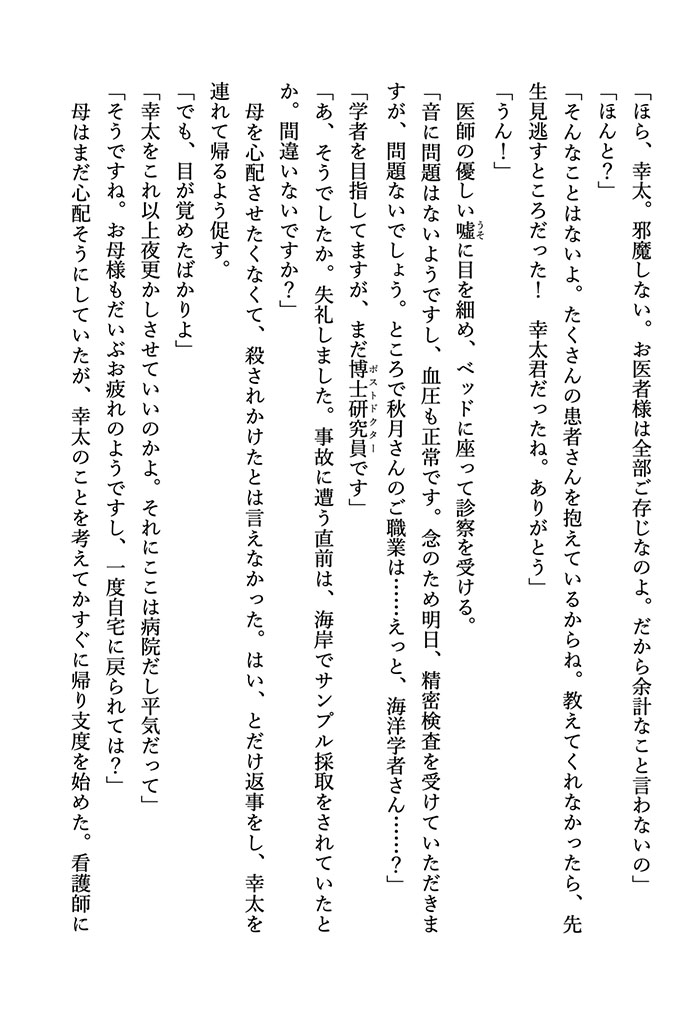 「ほら、幸太。邪魔しない。お医者様は全部ご存じなのよ。だから余計なこと言わないの」
「ほんと？」
「そんなことはないよ。たくさんの患者さんを抱えているからね。教えてくれなかったら、先
生見逃すところだった！　幸太君だったね。ありがとう」
「うん！」
　医師の優しい嘘うそに目を細め、ベッドに座って診察を受ける。
「音に問題はないようですし、血圧も正常です。念のため明日、精密検査を受けていただきま
すが、問題ないでしょう。ところで秋月さんのご職業は……えっと、海洋学者さん……？」
「学者を目指してますが、まだ博士研究員ポストドクターです」
「あ、そうでしたか。失礼しました。事故に遭う直前は、海岸でサンプル採取をされていたと
か。間違いないですか？」
　母を心配させたくなくて、殺されかけたとは言えなかった。はい、とだけ返事をし、幸太を
連れて帰るよう促す。
「でも、目が覚めたばかりよ」
「幸太をこれ以上夜更かしさせていいのかよ。それにここは病院だし平気だって」
「そうですね。お母様もだいぶお疲れのようですし、一度自宅に戻られては？」
　母はまだ心配そうにしていたが、幸太のことを考えてかすぐに帰り支度を始めた。看護師に